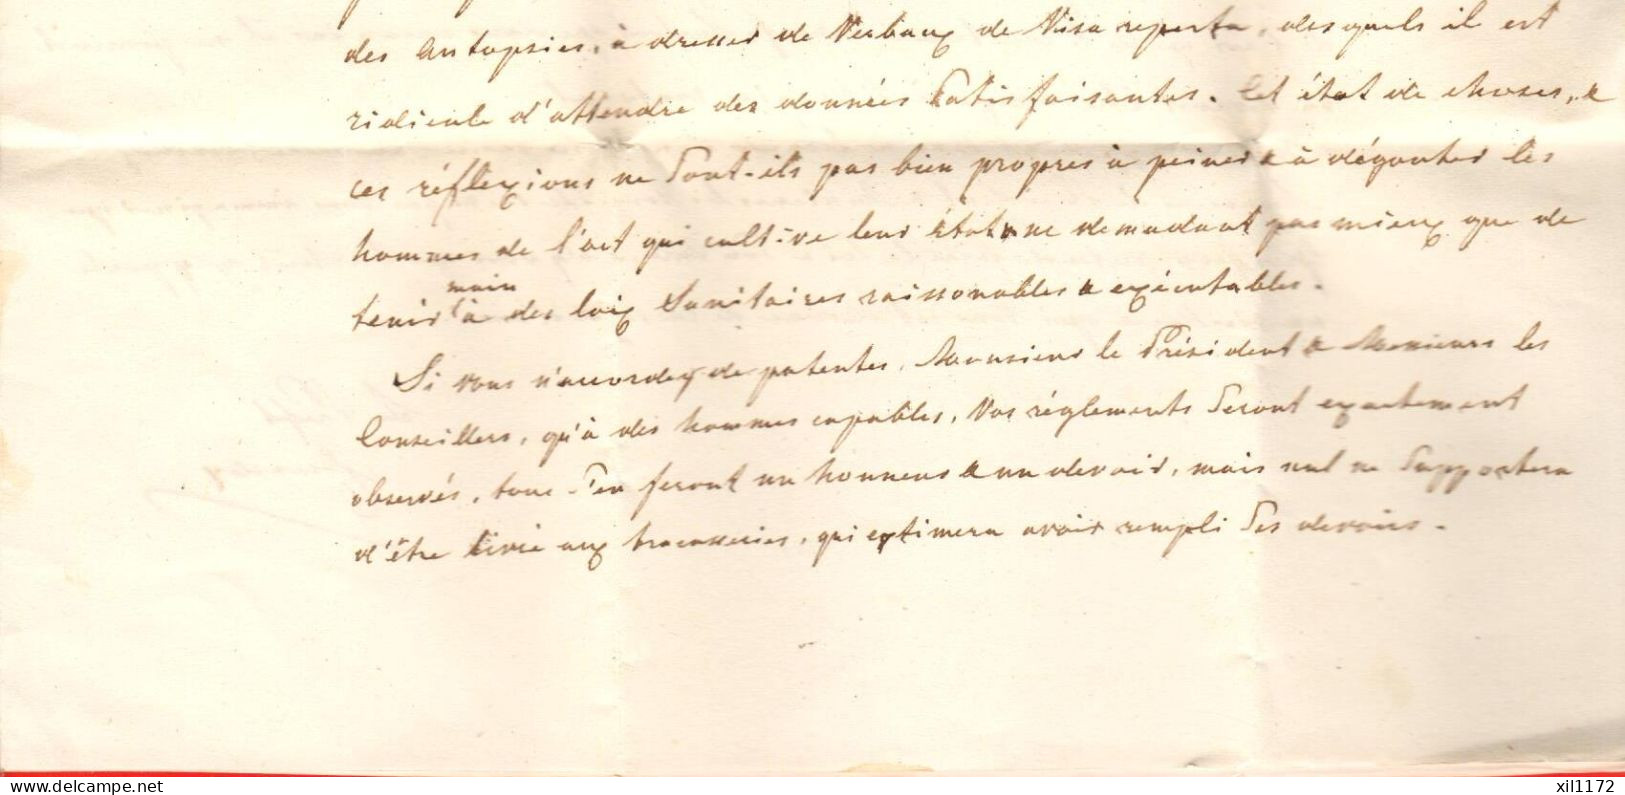 des autopsies, à dresser de Verbaux de Visa reperta, desquels il est
ridicule d'attendre des données satisfaisantes. Cet état de choses, &
ces réflexions ne sont-ils pas bien propres à peiner & à dégouter les
hommes de l'art qui cultive leur état & ne demandant pas mieux que de
main
tenir à des loix sanitaires raissonables & exécutables.
Si vous n'accordez de patentes, Monsieur le Président & Messieurs les
Conseillers, qu'à des hommes capables, Vos réglements seront exactement
observés, tous s'en feront un honneur & un devoir, mais nul ne supportera
d'être livré aux tracasseries, qui extimera avoir rempli ses devoirs.
www.delcampe.net
xil1172